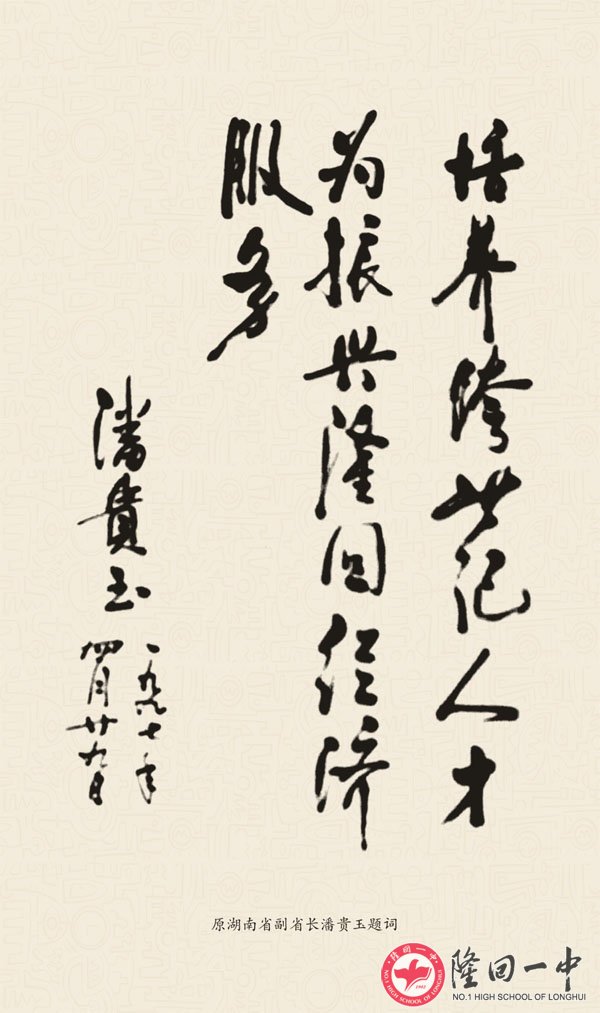 培养跨世纪人才
为振兴隆回经济
服务
潘貴玉
一九九七年
四月廿九日
原湖南省副省长潘贵玉题词
隆回一中
NO.1 HIGH SCHOOL OF LONGHUI
隆回一中
NO.1 HIGH SCHOOL OF LONGHUI